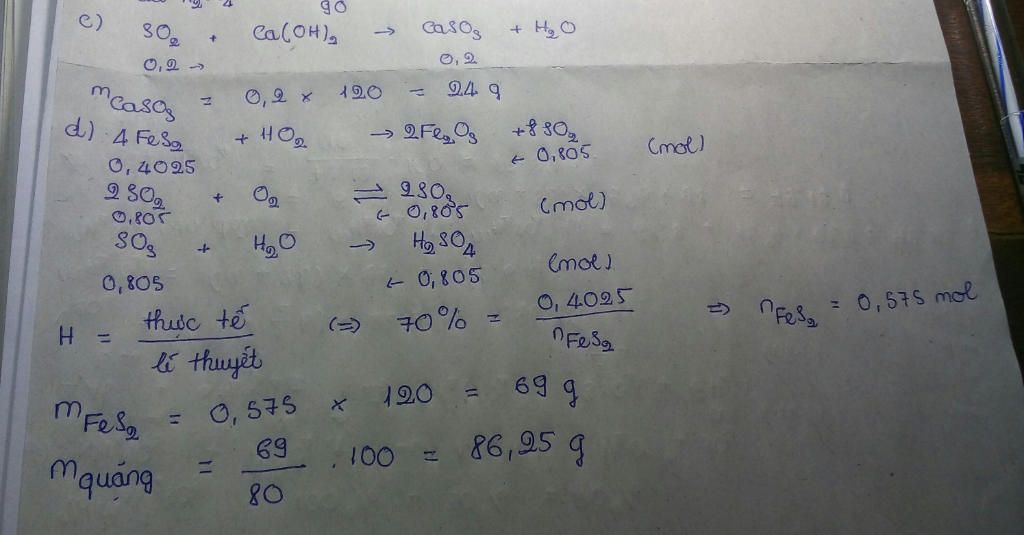 90
c) SO₂ + Ca(OH)₂ → CaSO₃ + H₂O
0,2 → 0,2
mCaSO₃ = 0,2 × 120 = 24 g
d) 4FeS₂ + 11O₂ → 2Fe₂O₃ + 8SO₂
0,4025 ← 0,805 (mol)
2SO₂ + O₂ ⇌ 2SO₃
0,805 ← 0,805 (mol)
SO₃ + H₂O → H₂SO₄
0,805 ← 0,805 (mol)
H = thực tế / lí thuyết (=) 70% = 0,4025 / nFeS₂ ⇒ nFeS₂ = 0,575 mol
mFeS₂ = 0,575 × 120 = 69 g
mquặng = 69 / 80 .100 = 86,25 g